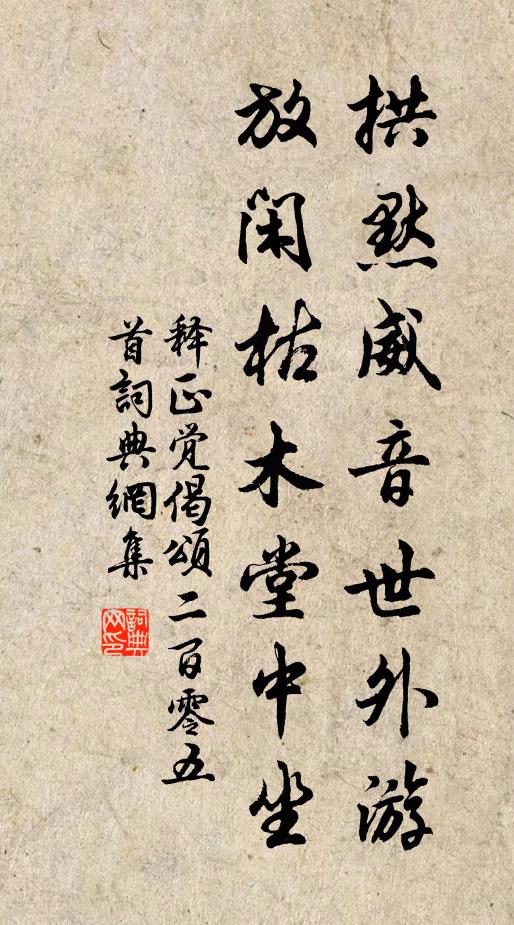 拱默威音世外游
放闲枯木堂中坐
释正觉偈頌二百零五
首詞典網集
詞典网印